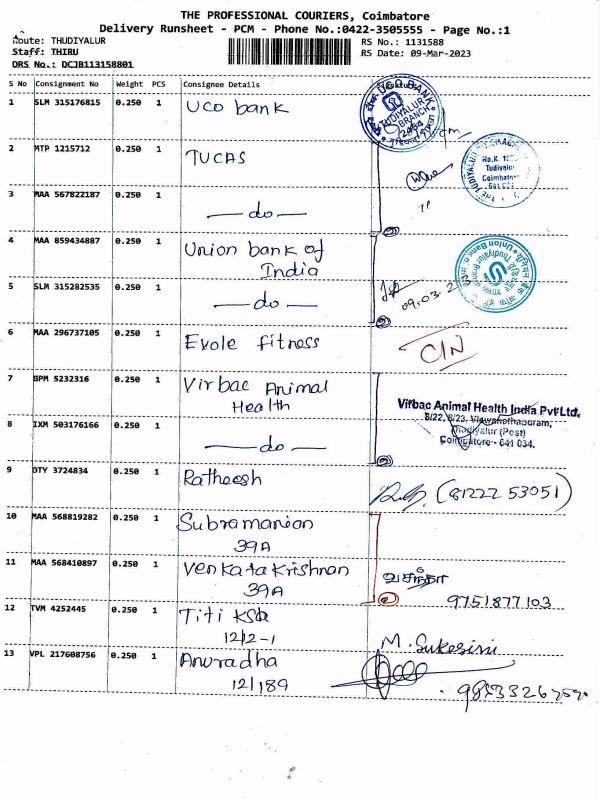 THE PROFESSIONAL COURIERS, Coimbatore
Delivery Runsheet - PCM - Phone No.:0422-3505555 - Page No.:1
Route: THUDIYALUR
Staff: THIRU
DRS No.: DCJB113158801
RS No.: 1131588
RS Date: 09-Mar-2023
S No Consignment No Weight PCS Consignee Details
1 SLM 315176815 0.250 1 UCO bank
UCO BANK
TUDIYALUR
BRANCH
2484
2 MTP 1215712 0.250 1 TUCAS
Tudiyalur
Coimbatore
3 MAA 567822187 0.250 1 —do—
4 MAA 859434887 0.250 1 Union bank of
India
5 SLM 315282535 0.250 1 —do—
09.03.2
6 MAA 296737105 0.250 1 Evole fitness
C/N
7 GPM 5232316 0.250 1 Virbac Animal
Health
Virbac Animal Health India Pvt Ltd,
8/22, 8/23, Viswanathapuram,
Thudiyalur (Post)
Coimbatore - 641 034.
8 IXM 503176166 0.250 1 —do—
9 DTY 3724834 0.250 1 Ratheesh
(81222 53051)
10 MAA 568819282 0.250 1 Subramanian
39A
11 MAA 568410897 0.250 1 Venkatakrishnan
39A
வசந்தா
9751877103
12 TVM 4252445 0.250 1 Titi
12/2-1
M. Sukesini
13 VPL 217608756 0.250 1 Anuradha
12/189